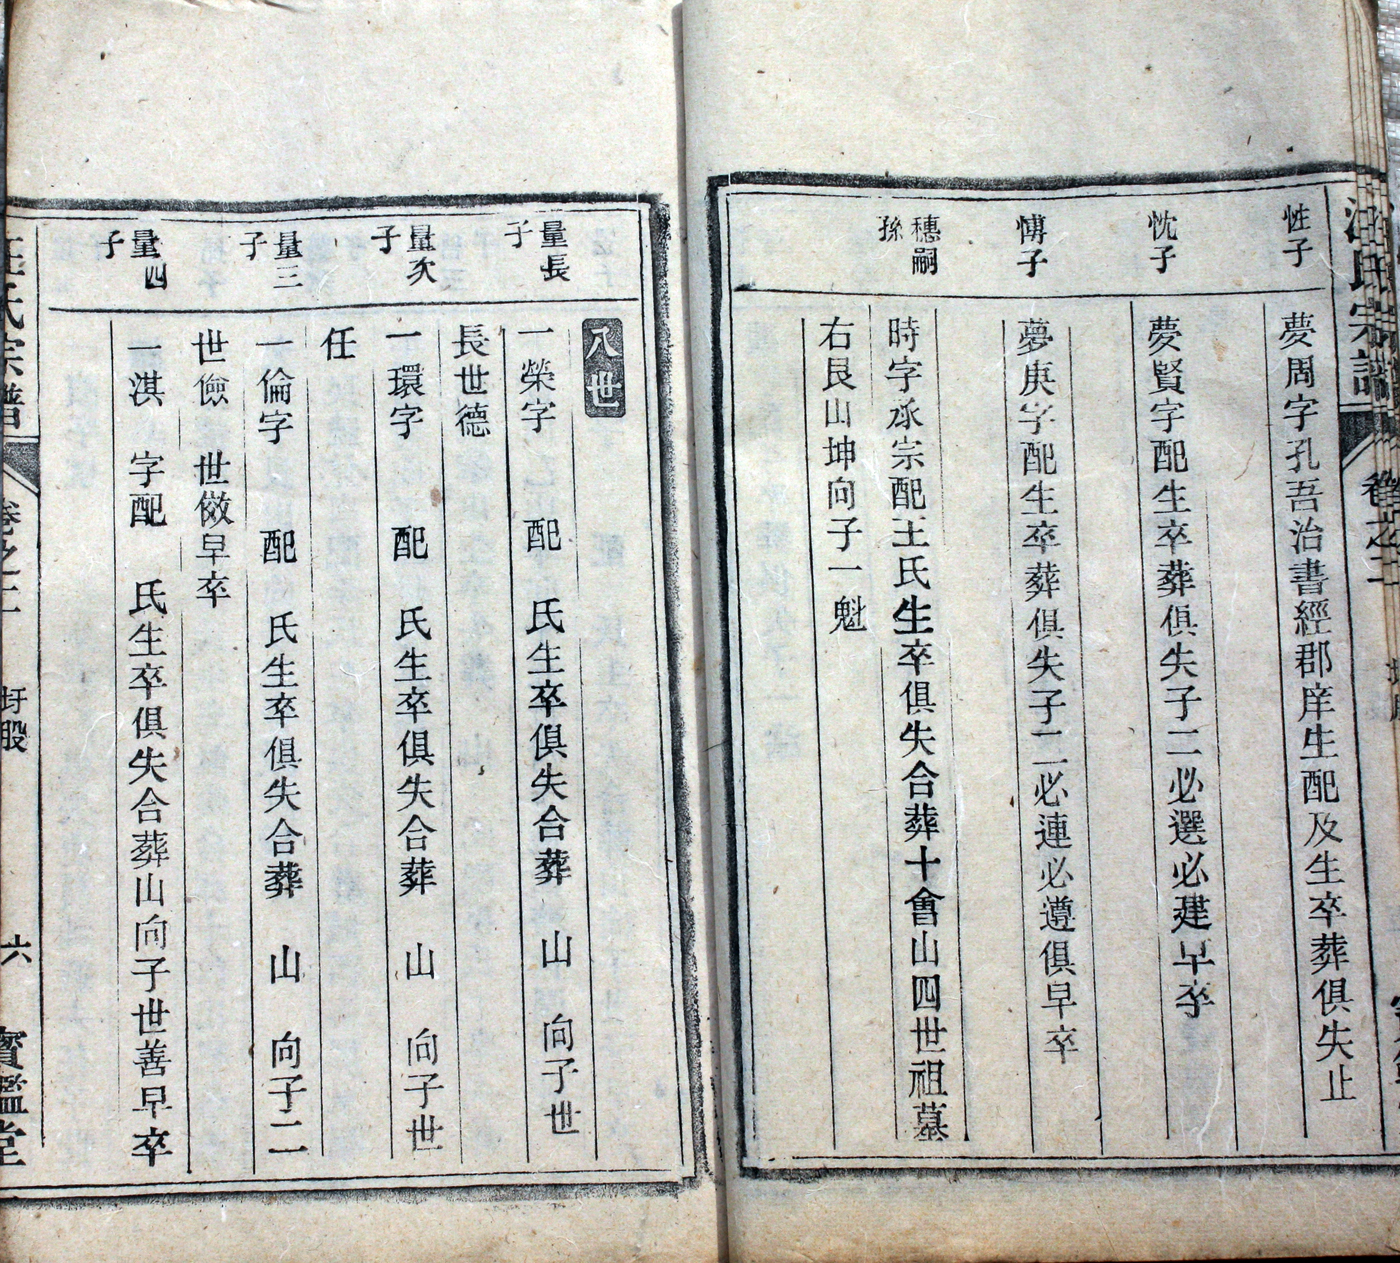 汪氏宗譜
卷之二
性子
夢周字孔吾治書經郡庠生配及生卒葬俱失止
忱子
夢賢字配生卒葬俱失子二必選必建早卒
慱子
夢庚字配生卒葬俱失子二必連必遵俱早卒
穗嗣
孫
時字承宗配王氏生卒俱失合葬十會山四世祖墓
右艮山坤向子一魁
八世
量長
子
一榮字 配 氏生卒俱失合葬 山 向子世
長世德
量次
子
一環字 配 氏生卒俱失合葬 山 向子世
任
量三
子
一倫字 配 氏生卒俱失合葬 山 向子二
世儉 世儆早卒
量四
子
一淇 字配 氏生卒俱失合葬山向子世善早卒
汪氏宗譜
卷之二
圩股
六
寶鑑堂